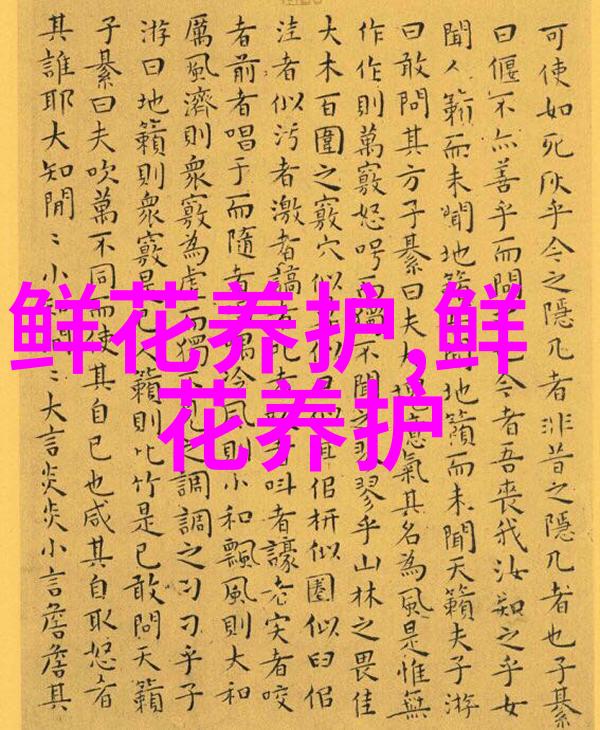 鲜花养护,鲜
花养护
可使如死灰乎今之隱几者非昔之隱几者也子綦
曰偃不亦善乎而問也今者吾喪我汝知之乎女
聞人籟而未聞地籟聞地籟而未聞天籟夫子游
曰敢問其方子綦曰夫大噫氣其名為風是惟無
作作則萬竅怒呺而獨不聞之翏乎山林之畏佳
大木百圍之竅穴似似似耳佀枅似圈似臼佀
洼者似污者激者謞者者者叫者譹者宎者咬
者前者唱于而隨者喁泠風則小和飄風則大和
厲風濟則衆竅為虛而獨不之調調之刁刁乎子
游曰地籟則衆竅是已人籟則比竹是已敢問天籟
子綦曰夫吹萬不同而使其自已也咸其自取怒者
其誰耶大知閒〻小〻大言炎炎小言詹詹其